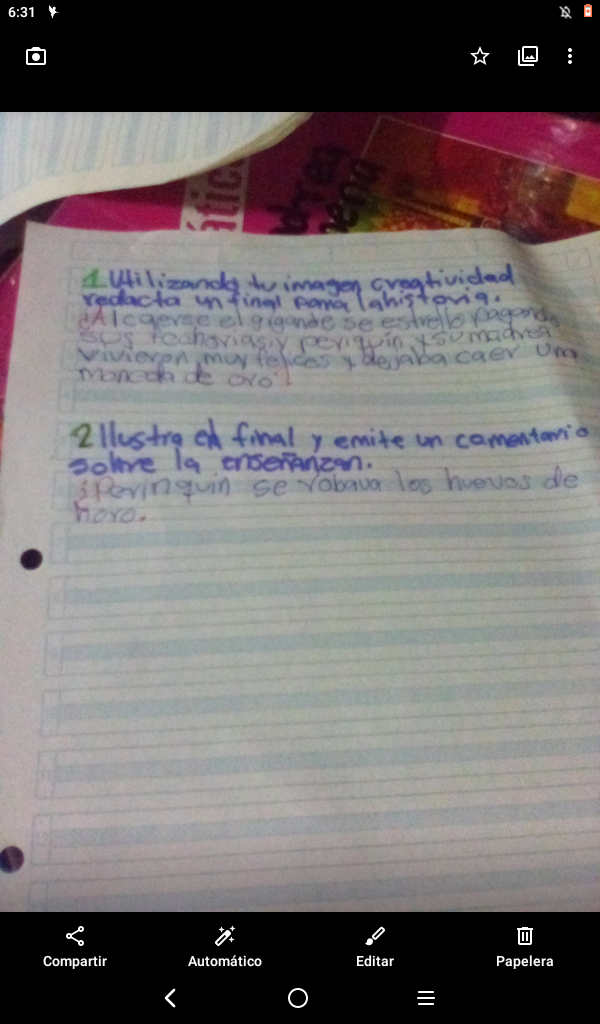 6:31
ática
1 Utilizando tu imagen creatividad
redacta un final para la historia.
¿Al caerse el gigande se estrello pagando
sus fechorias y periquin y su madre
vivieron muy felices y dejaba caer una
moneda de oro?
2 Ilustra el final y emite un comentario
sobre la enseñanzan.
¿Perinquin se robava los huevos de
horo.
Compartir
Automático
Editar
Papelera